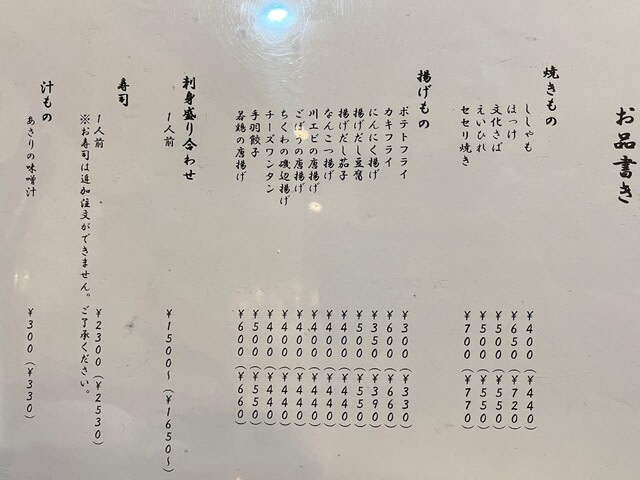 お品書き
焼きもの
ししゃも ¥400(¥440)
ほっけ ¥650(¥720)
文化さば ¥500(¥550)
えいひれ ¥500(¥550)
セセリ焼き ¥700(¥770)
揚げもの
ポテトフライ ¥300(¥330)
カキフライ ¥600(¥660)
にんにく揚げ ¥350(¥390)
揚げだし豆腐 ¥500(¥550)
揚げだし茄子 ¥400(¥440)
なんこつ揚げ ¥400(¥440)
川エビの唐揚げ ¥400(¥440)
ごぼうの唐揚げ ¥400(¥440)
ちくわの磯辺揚げ ¥400(¥440)
チーズワンタン ¥400(¥440)
手羽餃子 ¥500(¥550)
若鶏の唐揚げ ¥600(¥660)
刺身盛り合わせ
1人前 ¥1500～(¥1650～)
寿司
1人前 ¥2300(¥2530)
※お寿司は追加注文ができません。ご了承ください。
汁もの
あさりの味噌汁 ¥300(¥330)